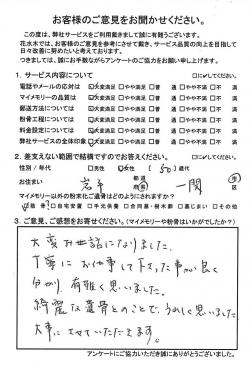 お客様のご意見をお聞かせください。
この度は、弊社サービスをご利用戴きまして誠に有難うございます。
花水木では、お客様のご意見を参考にさせて戴き、サービス品質の向上を目指して
日々改善に努めたいと考えております。
つきましては、誠にお手数ながらアンケートのご協力をお願い申し上げます。
1. サービス内容について □に✓してください。
電話やメールの応対は ☑大変満足 □やや満足 □普 通 □やや不満 □不 満
マイメモリーの品質は ☑大変満足 □やや満足 □普 通 □やや不満 □不 満
郵送方法について ☑大変満足 □やや満足 □普 通 □やや不満 □不 満
粉骨工程について ☑大変満足 □やや満足 □普 通 □やや不満 □不 満
料金設定について ☑大変満足 □やや満足 □普 通 □やや不満 □不 満
弊社サービスの全体印象 ☑大変満足 □やや満足 □普 通 □やや不満 □不 満
2. 差支えない範囲で結構ですのでお答えください。
性別／年代 □男性 ☑女性 ( 50 ) 歳代
お住まい 岩手 都道府県 一関 市区
マイメモリー以外の粉末化ご遺骨はどのようにされますか？
☑散 骨 □自宅安置 □手元供養 □合同墓・樹木葬 □墓じまい □その他
3. ご意見、ご感想をお寄せください。(マイメモリーや粉骨はいかがでしたか？)
大変お世話になりました。
丁寧にお仕事して下さった事が良く
分かり、有難く思いました。
綺麗な遺骨とのことで、うれしく思いました。
大事にさせていただきます。
アンケートにご協力いただき誠にありがとうございました。